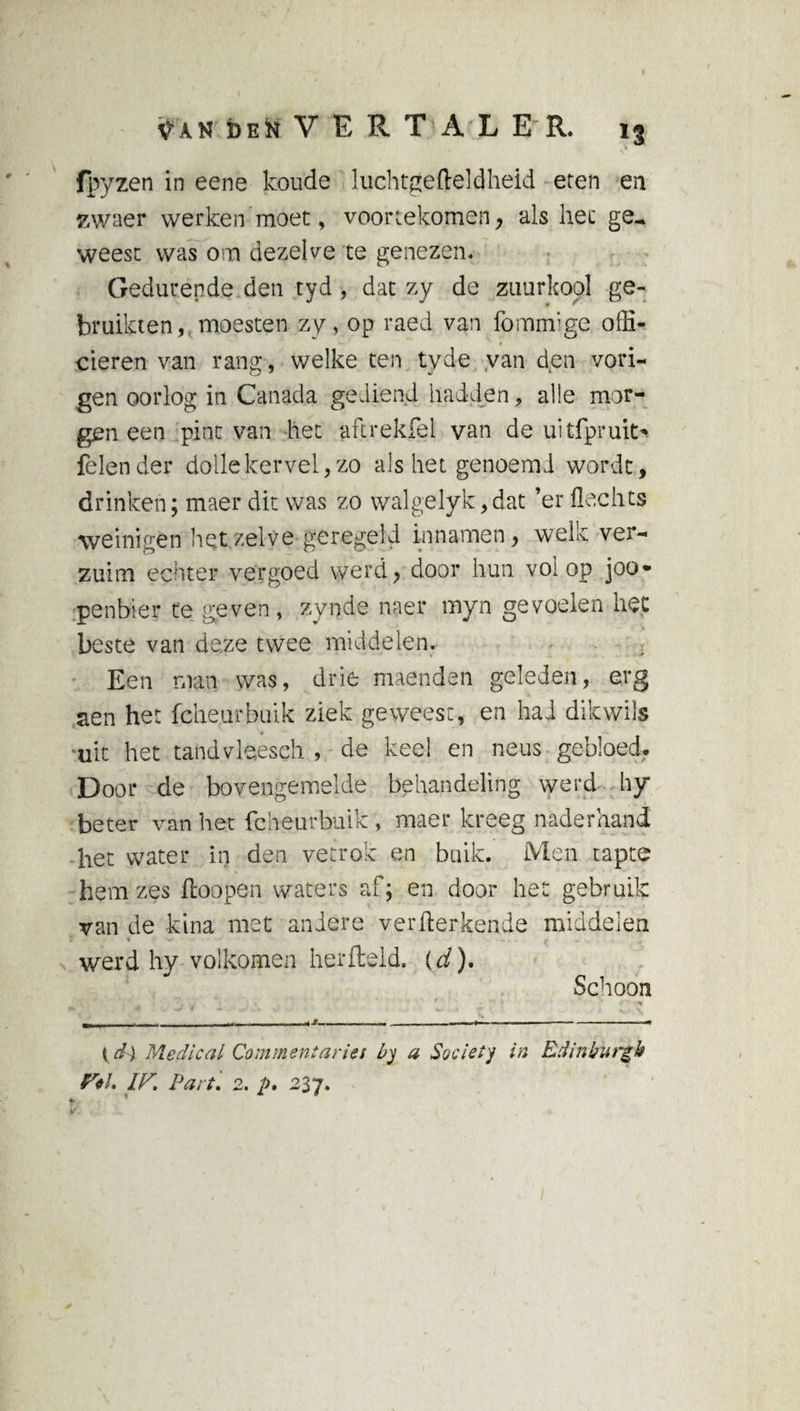 VAN DEN VERTALER. 13
ſpyzen in eene koude luchtgeſteldheid eten en
zwaer werken moet, voortekomen, als het ge-
weest was om dezelve te genezen.
Gedurende den tyd, dat zy de zuurkool ge-
bruikten, moesten zy, op raed van ſommige offi-
cieren van rang, welke ten tyde van den vori-
gen oorlog in Canada gediend hadden, alle mor-
gen een pint van het aftrekſel van de uitſpruit-
ſelen der dolle kervel, zo als het genoemd wordt,
drinken; maer dit was zo walgelyk, dat 'er ſlechts
weinigen het zelve geregeld innamen, welk ver-
zuim echter vergoed werd, door hun vol op joo-
penbier te geven, zynde naer myn gevoelen het
beste van deze twee middelen.
Een man was, drie maenden geleden, erg
aen het ſcheurbuik ziek geweest, en had dikwils
uit het tandvleesch, de keel en neus gebloed.
Door de bovengemelde behandeling werd hy
beter van het ſcheurbuik, maer kreeg naderhand
het water in den vetrok en buik. Men tapte
hem zes ſtoopen waters af; en door het gebruik
van de kina met andere verſterkende middelen
werd hy volkomen herſteld. (d).
Schoon
(d) Medical Commentaries by a Society in Edinburgh
Vol. IV. Part. 2. p. 237.